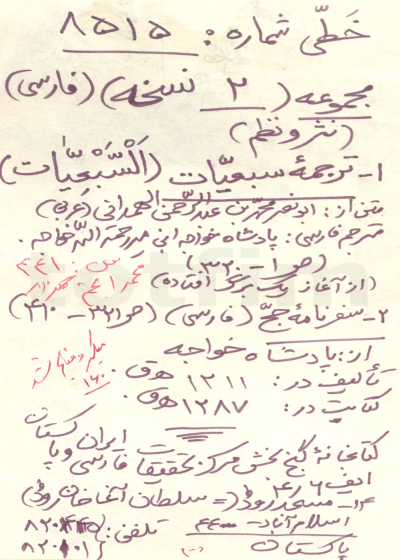 خَطّی شماره: ۸۵۱۵
مجموعه (۲ نسخه) (فارسی)
(نثر و نظم)
۱- ترجمهٔ سبعیّات (اَلسَّبْعِیَّات)
متن از: ابونصر محمد بن عبدالرحمن الهمدانی (عربی)
مترجم فارسی: پادشاه خواجه ابن رحمة الله خواجه.
(ص ۱-۳۲۰)
(از آغاز یک برگ افتاده)
۲- سفرنامهٔ حجّ (فارسی) (ص ۳۲۱-۴۱۰)
از: پادشاه خواجه
تألیف در: ۱۲۱۱ هـ ق.
کتابت در: ۱۲۸۷ هـ ق.
کتابخانهٔ گنج بخش مرکز تحقیقات فارسی ایران و پاکستان
۱۴- مسجد روڈ (= سلطان آغا خان روڈ) ایف ۶/۴
اسلام آباد - ۴۴۰۰۰ تلفنی:
پاکستان